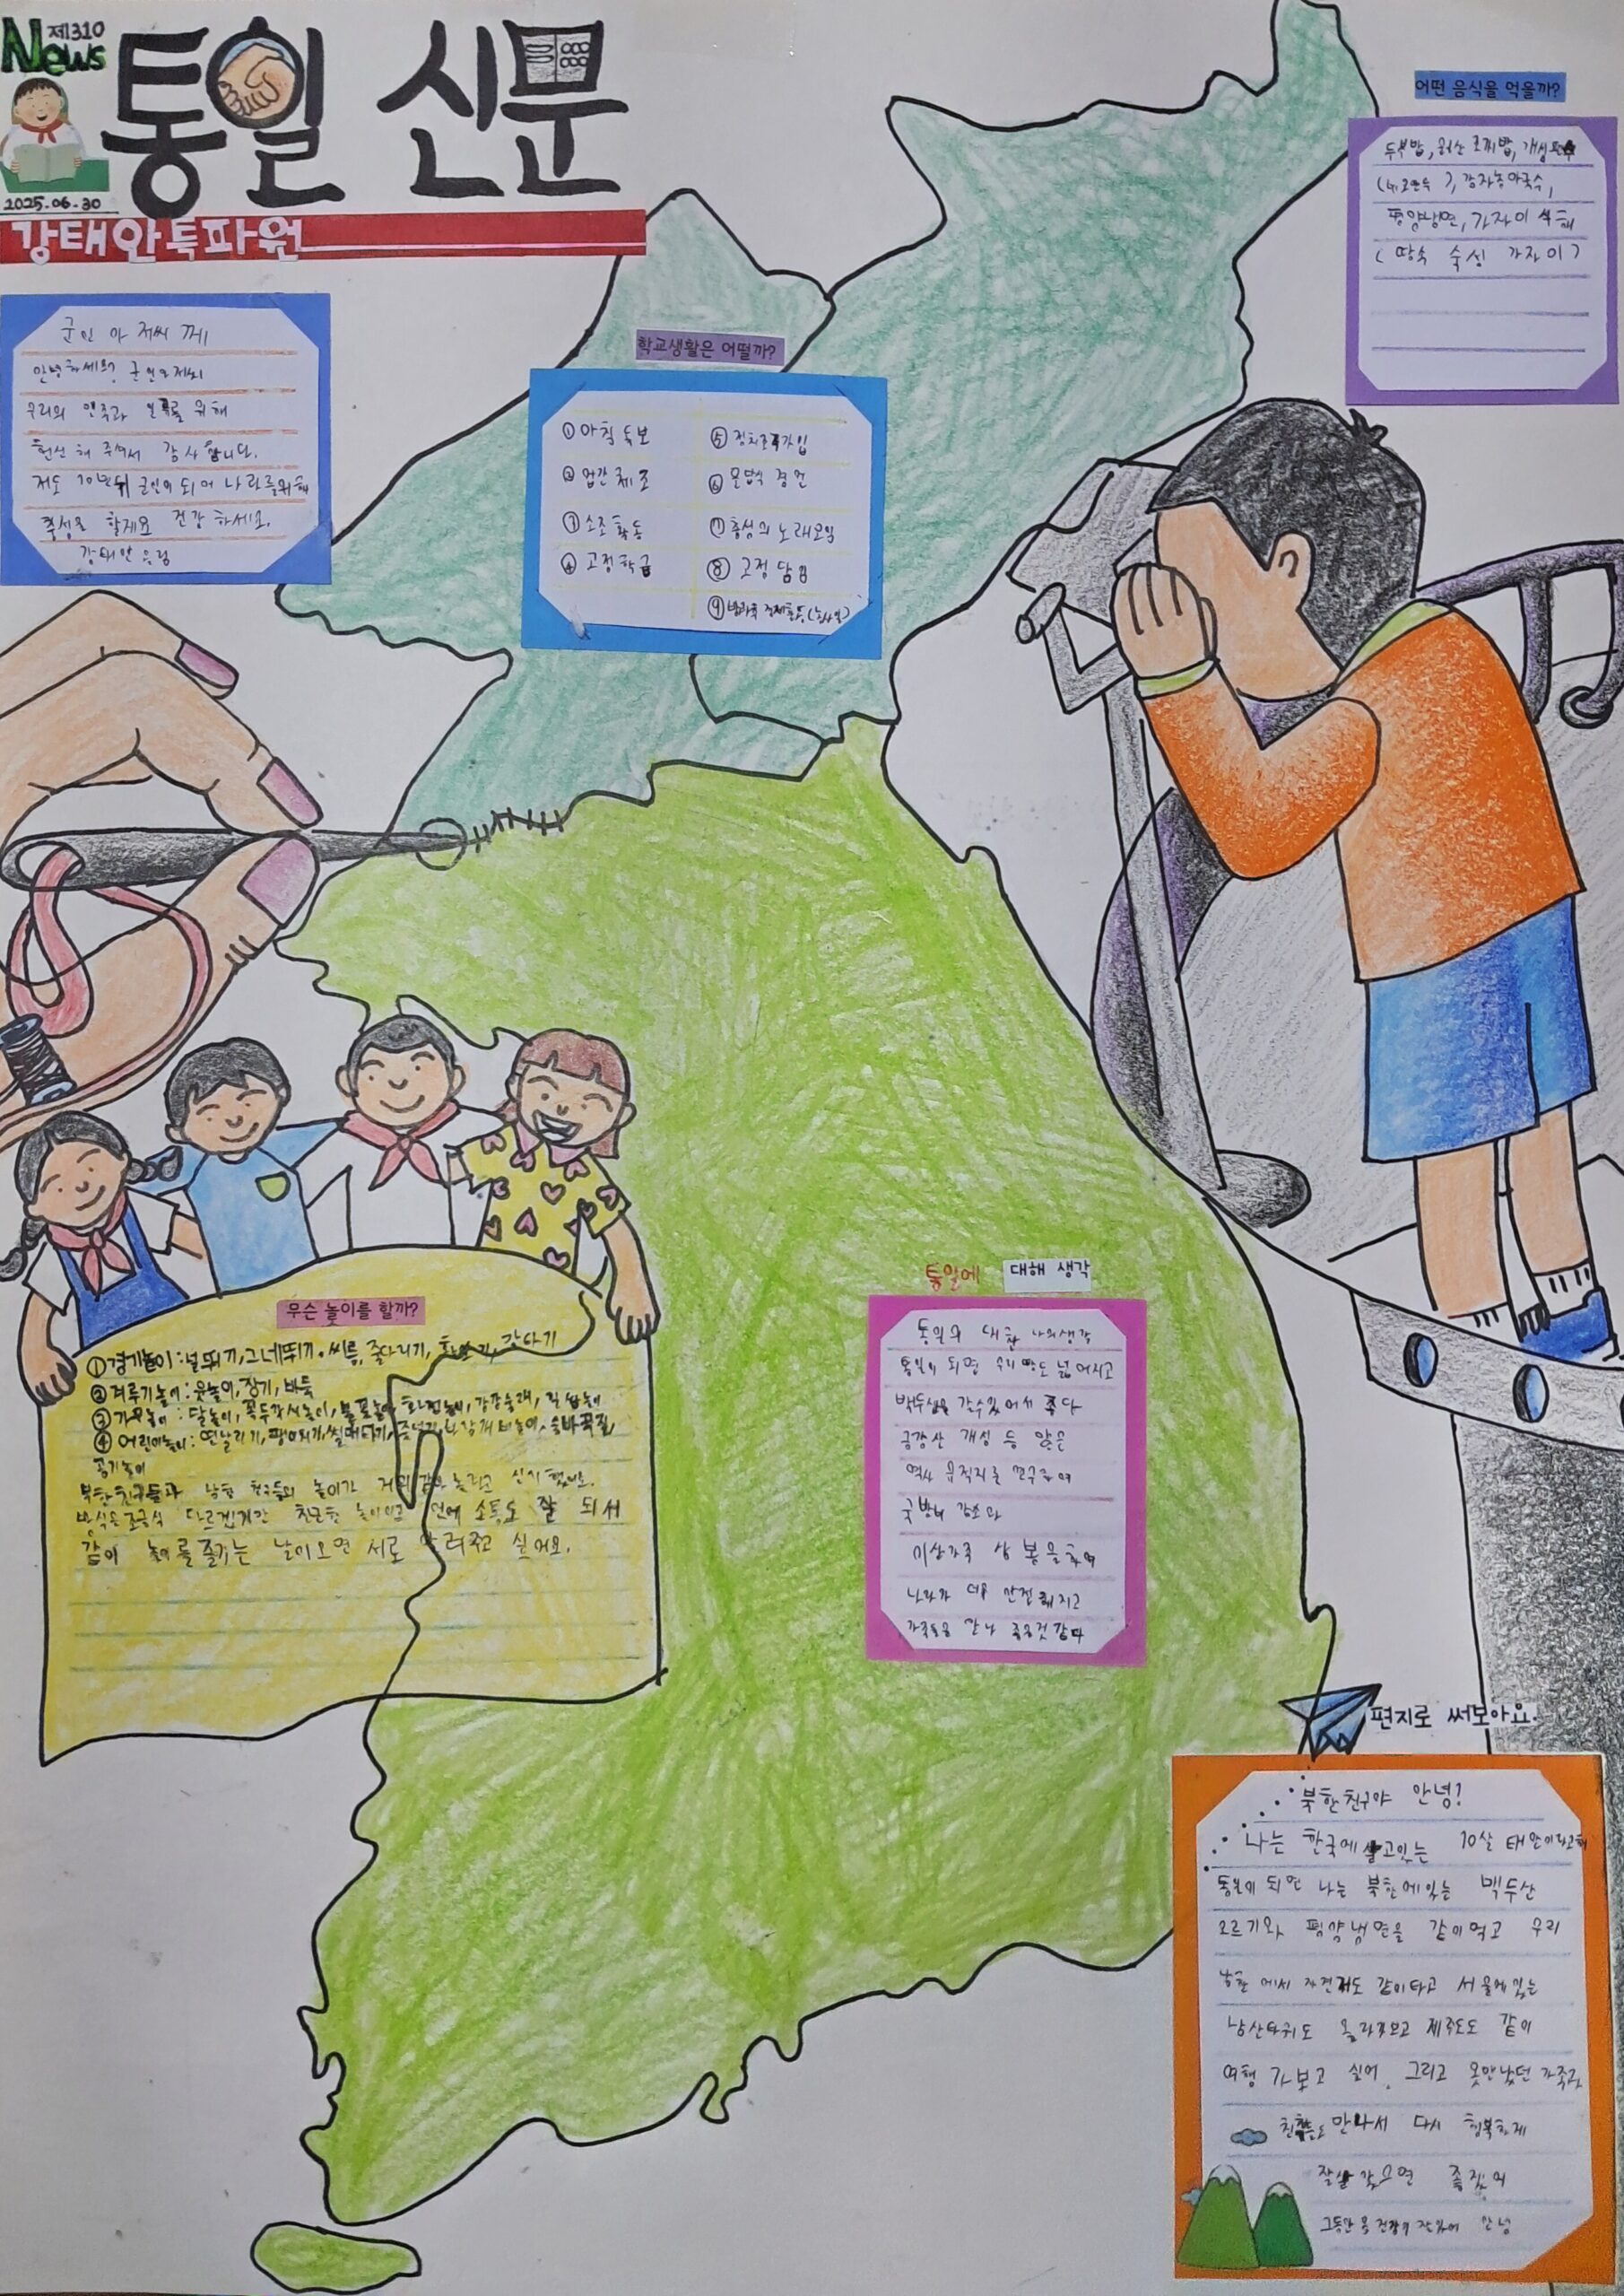 News 제310
통일 신문
2025.06.30
강태안특파원
군인 아저씨 께
안녕하세요? 군인아저씨
우리의 민족과 를 위해
헌신 해 주셔서 감사합니다.
저도 10년뒤 군인이 되어 나라를위해
충성을 할게요 건강 하세요.
강태안 올림
학교생활은 어떨까?
①아침 독보
②업간 체조
③소조 활동
④고정학급
⑤정치조직가입
⑥문답식 경연
⑦충성의 노래모임
⑧고정 담임
⑨방과후
어떤 음식을 먹을까?
두부밥, 조찌밥, 개성
감자농마국수,
평양냉면, 가자미 식해
(땅속 숙성 가자미)
무슨 놀이를 할까?
①경기놀이:널뛰기,그네뛰기,씨름,줄다리기,
②겨루기놀이:윷놀이,장기,바둑
③가무놀이:탈놀이,꼭두각시놀이, 화전놀이,강강술래,
④어린이놀이:연날리기,팽이치기,썰매타기,줄넘기,바람개비놀이,숨바꼭질,
공기놀이
북한친구들과 남한 친구들의 놀이가 거의 같아 놀라고 신기했어요.
방식은조금씩 다르겠지만 친근한 소통도 잘 되서
같이 놀이를 즐기는 날이오면 서로 알려주고 싶어요.
통일에 대해 생각
통일의 대한 나의생각
통일이 되면 우리 땅도 넓어지고
백두산을 갈수있어서 좋다
금강산 개성 등 많은
역사 유적지를 연구하여
국방비 감소와
이산가족 상봉을하여
나라가 더욱 안전해지고
가족들을 만나 좋을것 같다
편지로 써보아요.
북한친구야 안녕?
나는 한국에 살고있는 10살 태안이라고해
통일이 되면 나는 북한에있는 백두산
오르기와 평양냉면을 같이먹고 우리
남한에서 자전거도 같이타고 서울에있는
남산타워도 올라가보고 제주도도 같이
여행 가보고 싶어. 그리고 못만났던 가족과
친척들도 만나서 다시 행복하게
잘살 갔으면 좋겠어
그동안 건강히 잘있어 안녕